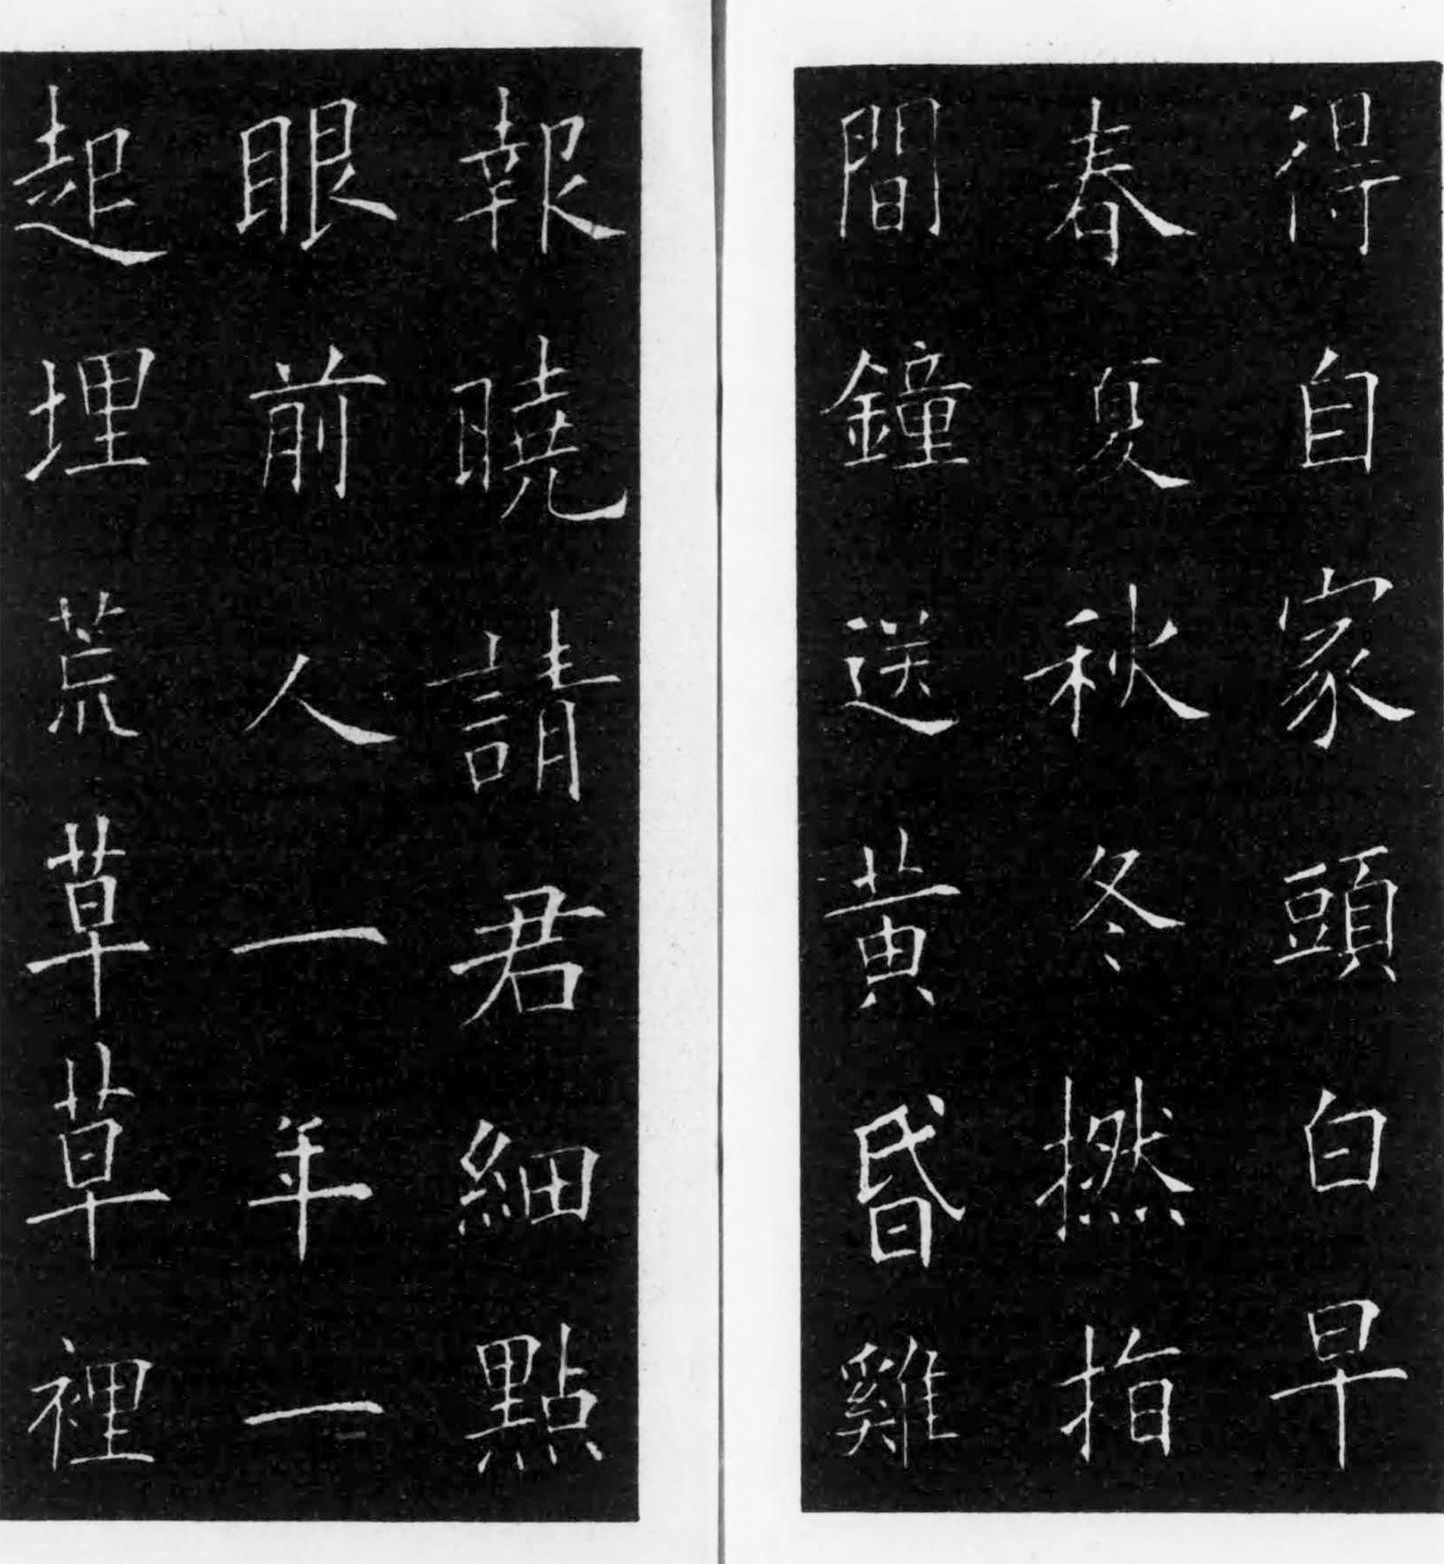 得自家頭白早
春夏秋冬撚指
間鐘送黃昏雞
報曉請君細點
眼前人一年一
起埋荒草草裡